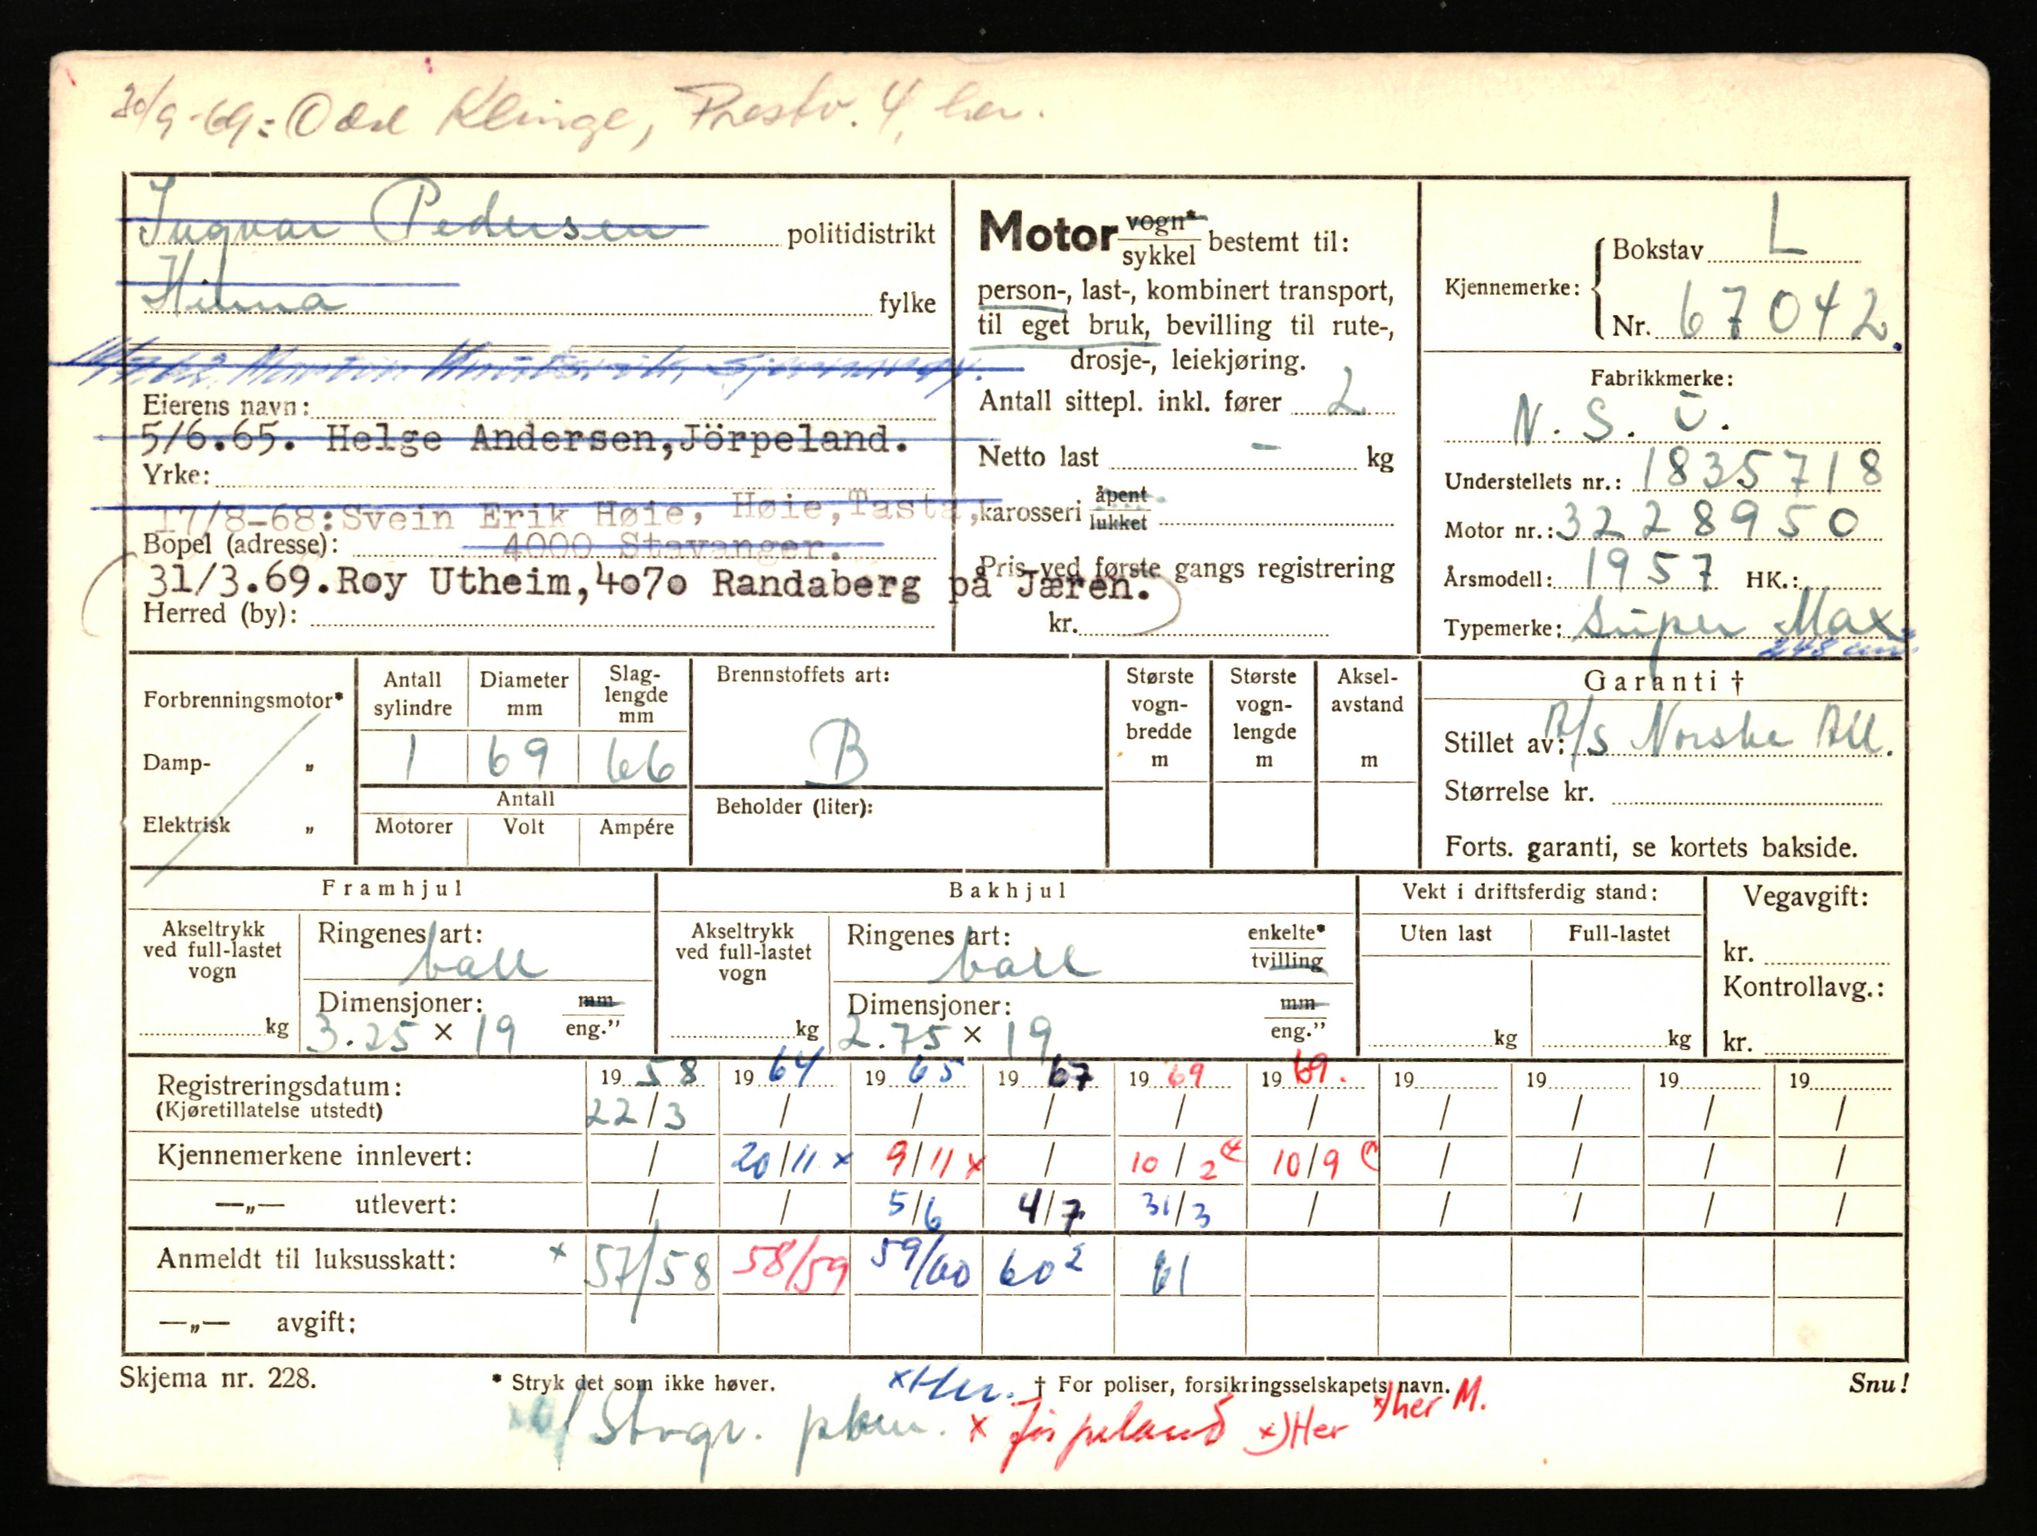 30/9-69: Odd Klinge, Prestv. 4, her.
Ingvar Pedersen politidistrikt
Hinna fylke
Eierens navn:
5/6.65. Helge Andersen,Jörpeland.
Yrke:
17/8-68:Svein Erik Høie, Høie,Tasta,
Bopel (adresse): 4000 Stavanger.
31/3.69.Roy Utheim,4070 Randaberg på Jæren.
Herred (by):
Motor vogn* / sykkel bestemt til:
person-, last-, kombinert transport,
til eget bruk, bevilling til rute-,
drosje-, leiekjøring.
Antall sittepl. inkl. fører 2
Netto last - kg
karosseri åpent / lukket
Pris ved første gangs registrering
kr.
Kjennemerke: Bokstav L
Nr. 67042.
Fabrikkmerke:
N. S. U.
Understellets nr.: 1835718
Motor nr.: 3228950
Årsmodell: 1957 HK.:
Typemerke: Super Max
248 cm³
Forbrenningsmotor*
Damp- „
Elektrisk „
Antall sylindre 1
Diameter mm 69
Slag-lengde mm 66
Antall
Motorer Volt Ampére
Brennstoffets art:
B
Beholder (liter):
Største vogn-bredde m
Største vogn-lengde m
Aksel-avstand m
Garanti †
Stillet av: A/S Norske All.
Størrelse kr.
Forts. garanti, se kortets bakside.
Framhjul
Akseltrykk ved full-lastet vogn kg
Ringenes art: ball
Dimensjoner: mm / eng.”
3.25 × 19
Bakhjul
Akseltrykk ved full-lastet vogn kg
Ringenes art: ball
enkelte* / tvilling
Dimensjoner: mm / eng.”
2.75 × 19
Vekt i driftsferdig stand:
Uten last Full-lastet
kg kg
Vegavgift:
kr.
Kontrollavg.:
kr.
Registreringsdatum: 1958 1964 1965 1967 1969 1969. 19 19 19 19
(Kjøretillatelse utstedt) 22/3 / / / / / / / / /
Kjennemerkene innlevert: / 20/11 x 9/11 x / 10/2 10/9 / / / /
—„— utlevert: / / 5/6 4/7 31/3 / / / / /
Anmeldt til luksusskatt: x 57/58 58/59 59/60 60² 61
—„— avgift:
Skjema nr. 228. * Stryk det som ikke høver. x Her. † For poliser, forsikringsselskapets navn. Snu!
Stvgr. pkm. x Jørpeland x) Her x) her M.